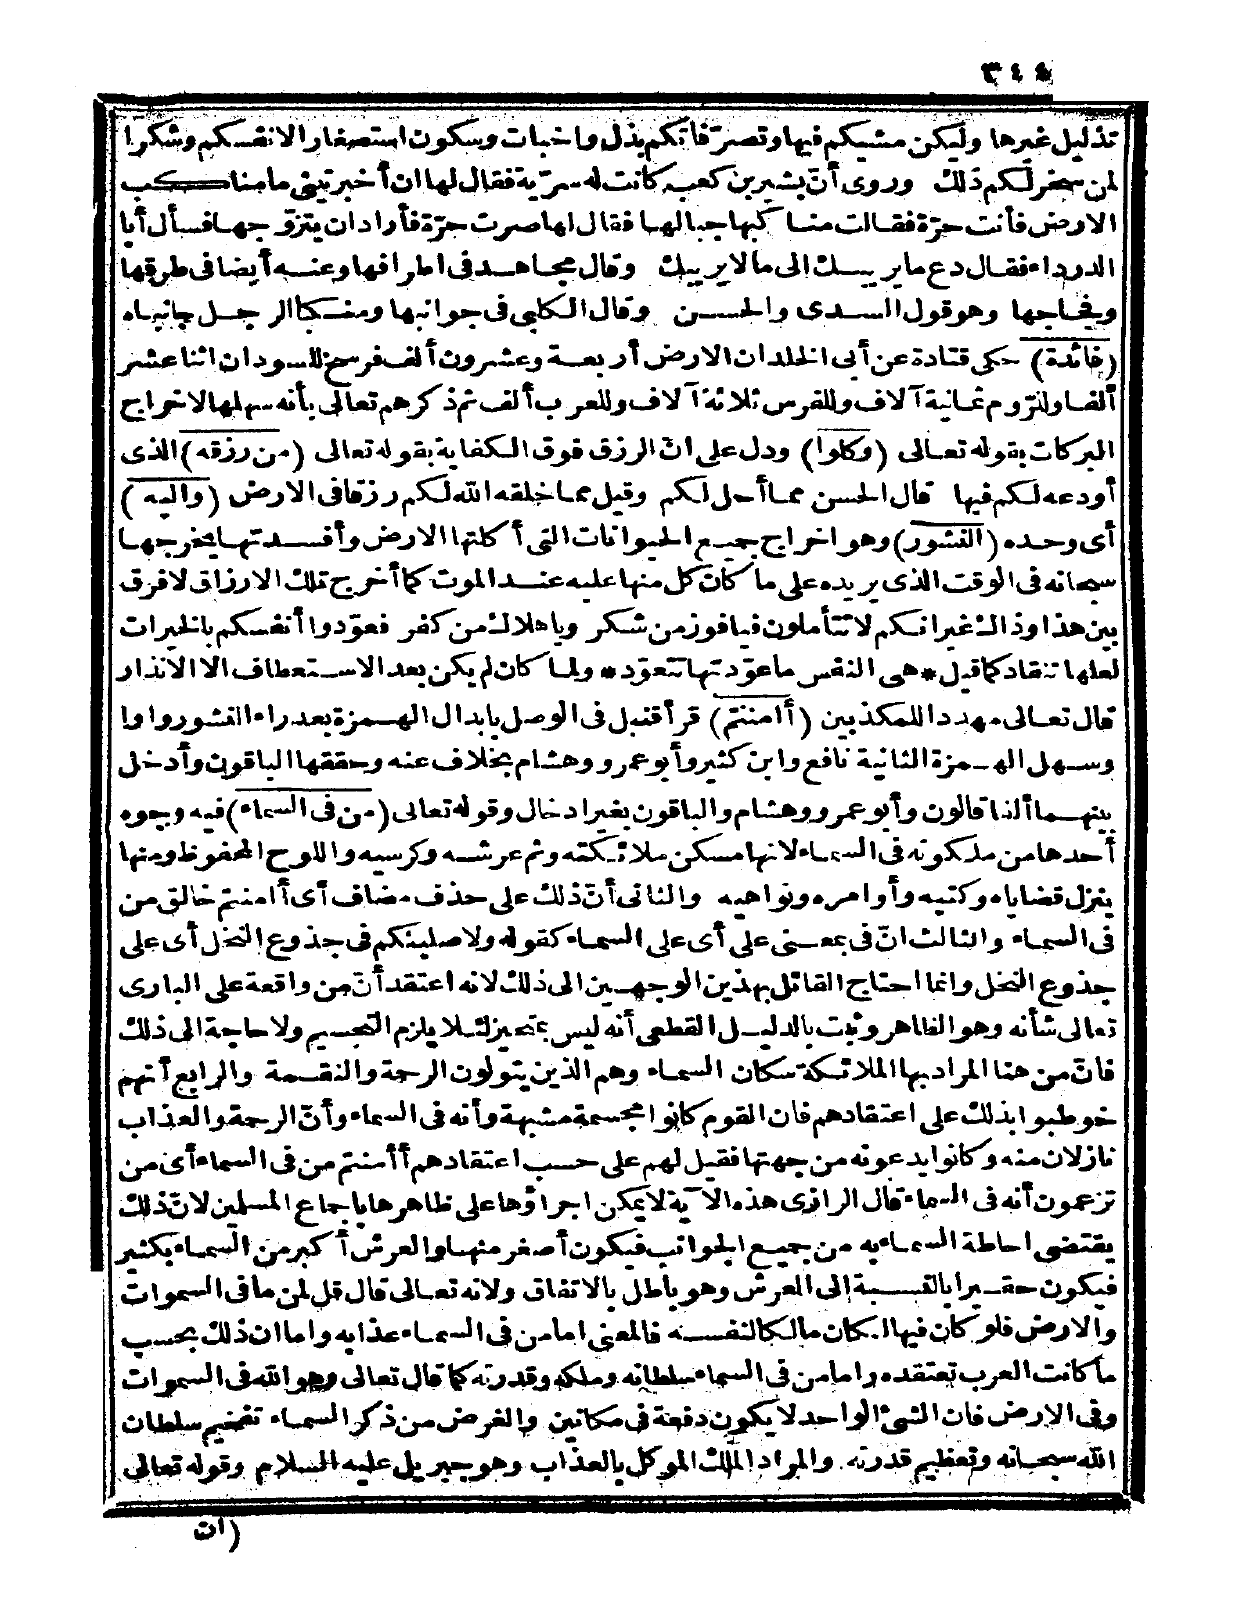 ٣٤٤
تذليل غيرها وليكن مشيكم فيها وتصرّفاتكم بذل واخبات وسكون استصغارا لانفسكم وشكرا
لمن سخر لكم ذلك وروى أنّ بشير بن كعب كانت له سرّية فقال لها ان أخبرتينى ما مناكب
الارض فأنت حرّة فقالت مناكبها جبالها فقال لها صرت حرّة فأراد ان يتزوّجها فسأل أبا
الدرداء فقال دع ما يريبك الى ما لا يريبك وقال مجاهد فى اطرافها وعنه أيضا فى طرقها
وفجاجها وهو قول السدى والحسن وقال الكلبى فى جوانبها ومنكبا الرجل جانباه
(فائدة) حكى قتادة عن أبى الخلد ان الارض أربعة وعشرون ألف فرسخ للسودان اثنا عشر
ألفا وللرّوم ثمانية آلاف وللفرس ثلاثة آلاف وللعرب ألف ثم ذكرهم تعالى بأنه سهلها لاخراج
البركات بقوله تعالى (وكلوا) ودل على انّ الرزق فوق الكفاية بقوله تعالى (من رزقه) الذى
أودعه لكم فيها قال الحسن مما أحل لكم وقيل مما خلقه الله لكم رزقا فى الارض (واليه)
أى وحده (النشور) وهو اخراج جميع الحيوانات التى أكلتها الارض وأفسدتها يخرجها
سبحانه فى الوقت الذى يريده على ما كان كل منها عليه عند الموت كما أخرج تلك الارزاق لا فرق
بين هذا وذاك غير انكم لا تتأملون فيا فوز من شكر ويا هلاك من كفر فعوّدوا أنفسكم بالخيرات
لعلها تنقاد كما قيل * هى النفس ما عوّدتها تتعود * ولما كان لم يكن بعد الاستعطاف الا الانذار
قال تعالى مهددا للمكذبين (أامنتم) قرأ قنبل فى الوصل بابدال الهمزة بعد راء النشور واوا
وسهل الهمزة الثانية نافع وابن كثير وأبو عمرو وهشام بخلاف عنه وحققها الباقون وأدخل
بينهما ألفا قالون وأبو عمرو وهشام والباقون بغير ادخال وقوله تعالى (من فى السماء) فيه وجوه
أحدها من ملكوته فى السماء لانها مسكن ملائكته وثم عرشه وكرسيه واللوح المحفوظ ومنها
ينزل قضاياه وكتبه وأوامره ونواهيه والثانى أنّ ذلك على حذف مضاف أى أامنتم خالق من
فى السماء والثالث انّ فى بمعنى على أى على السماء كقوله ولاصلبنكم فى جذوع النخل أى على
جذوع النخل وانما احتاج القائل بهذين الوجهين الى ذلك لانه اعتقد أنّ من واقعة على البارى
تعالى شأنه وهو الظاهر وثبت بالدليل القطعى أنه ليس بمتحيز لئلا يلزم التجسيم ولا حاجة الى ذلك
فانّ من هنا المراد بها الملائكة سكان السماء وهم الذين يتولون الرحمة والنقمة والرابع أنهم
خوطبوا بذلك على اعتقادهم فان القوم كانوا مجسمة مشبهة وأنه فى السماء وأنّ الرحمة والعذاب
نازلان منه وكانوا يدعونه من جهتها فقيل لهم على حسب اعتقادهم أأمنتم من فى السماء أى من
تزعمون أنه فى السماء قال الرازى هذه الآية لا يمكن اجراؤها على ظاهرها باجماع المسلمين لانّ ذلك
يقتضى احاطة السماء به من جميع الجوانب فيكون أصغر منها والعرش أكبر من السماء بكثير
فيكون حقيرا بالنسبة إلى العرش وهو باطل بالاتفاق ولانه تعالى قال قل لمن ما فى السموات
والارض فلو كان فيها لكان مالكا لنفسه فالمعنى اما من فى السماء عذابه واما ان ذلك بحسب
ما كانت العرب تعتقده واما من فى السماء سلطانه وملكه وقدرته كما قال تعالى وهو الله فى السموات
وفى الارض فان الشئ الواحد لا يكون دفعة فى مكانين والغرض من ذكر السماء تفخيم سلطان
الله سبحانه وتعظيم قدرته والمراد الملك الموكل بالعذاب وهو جبريل عليه السلام وقوله تعالى
(ان